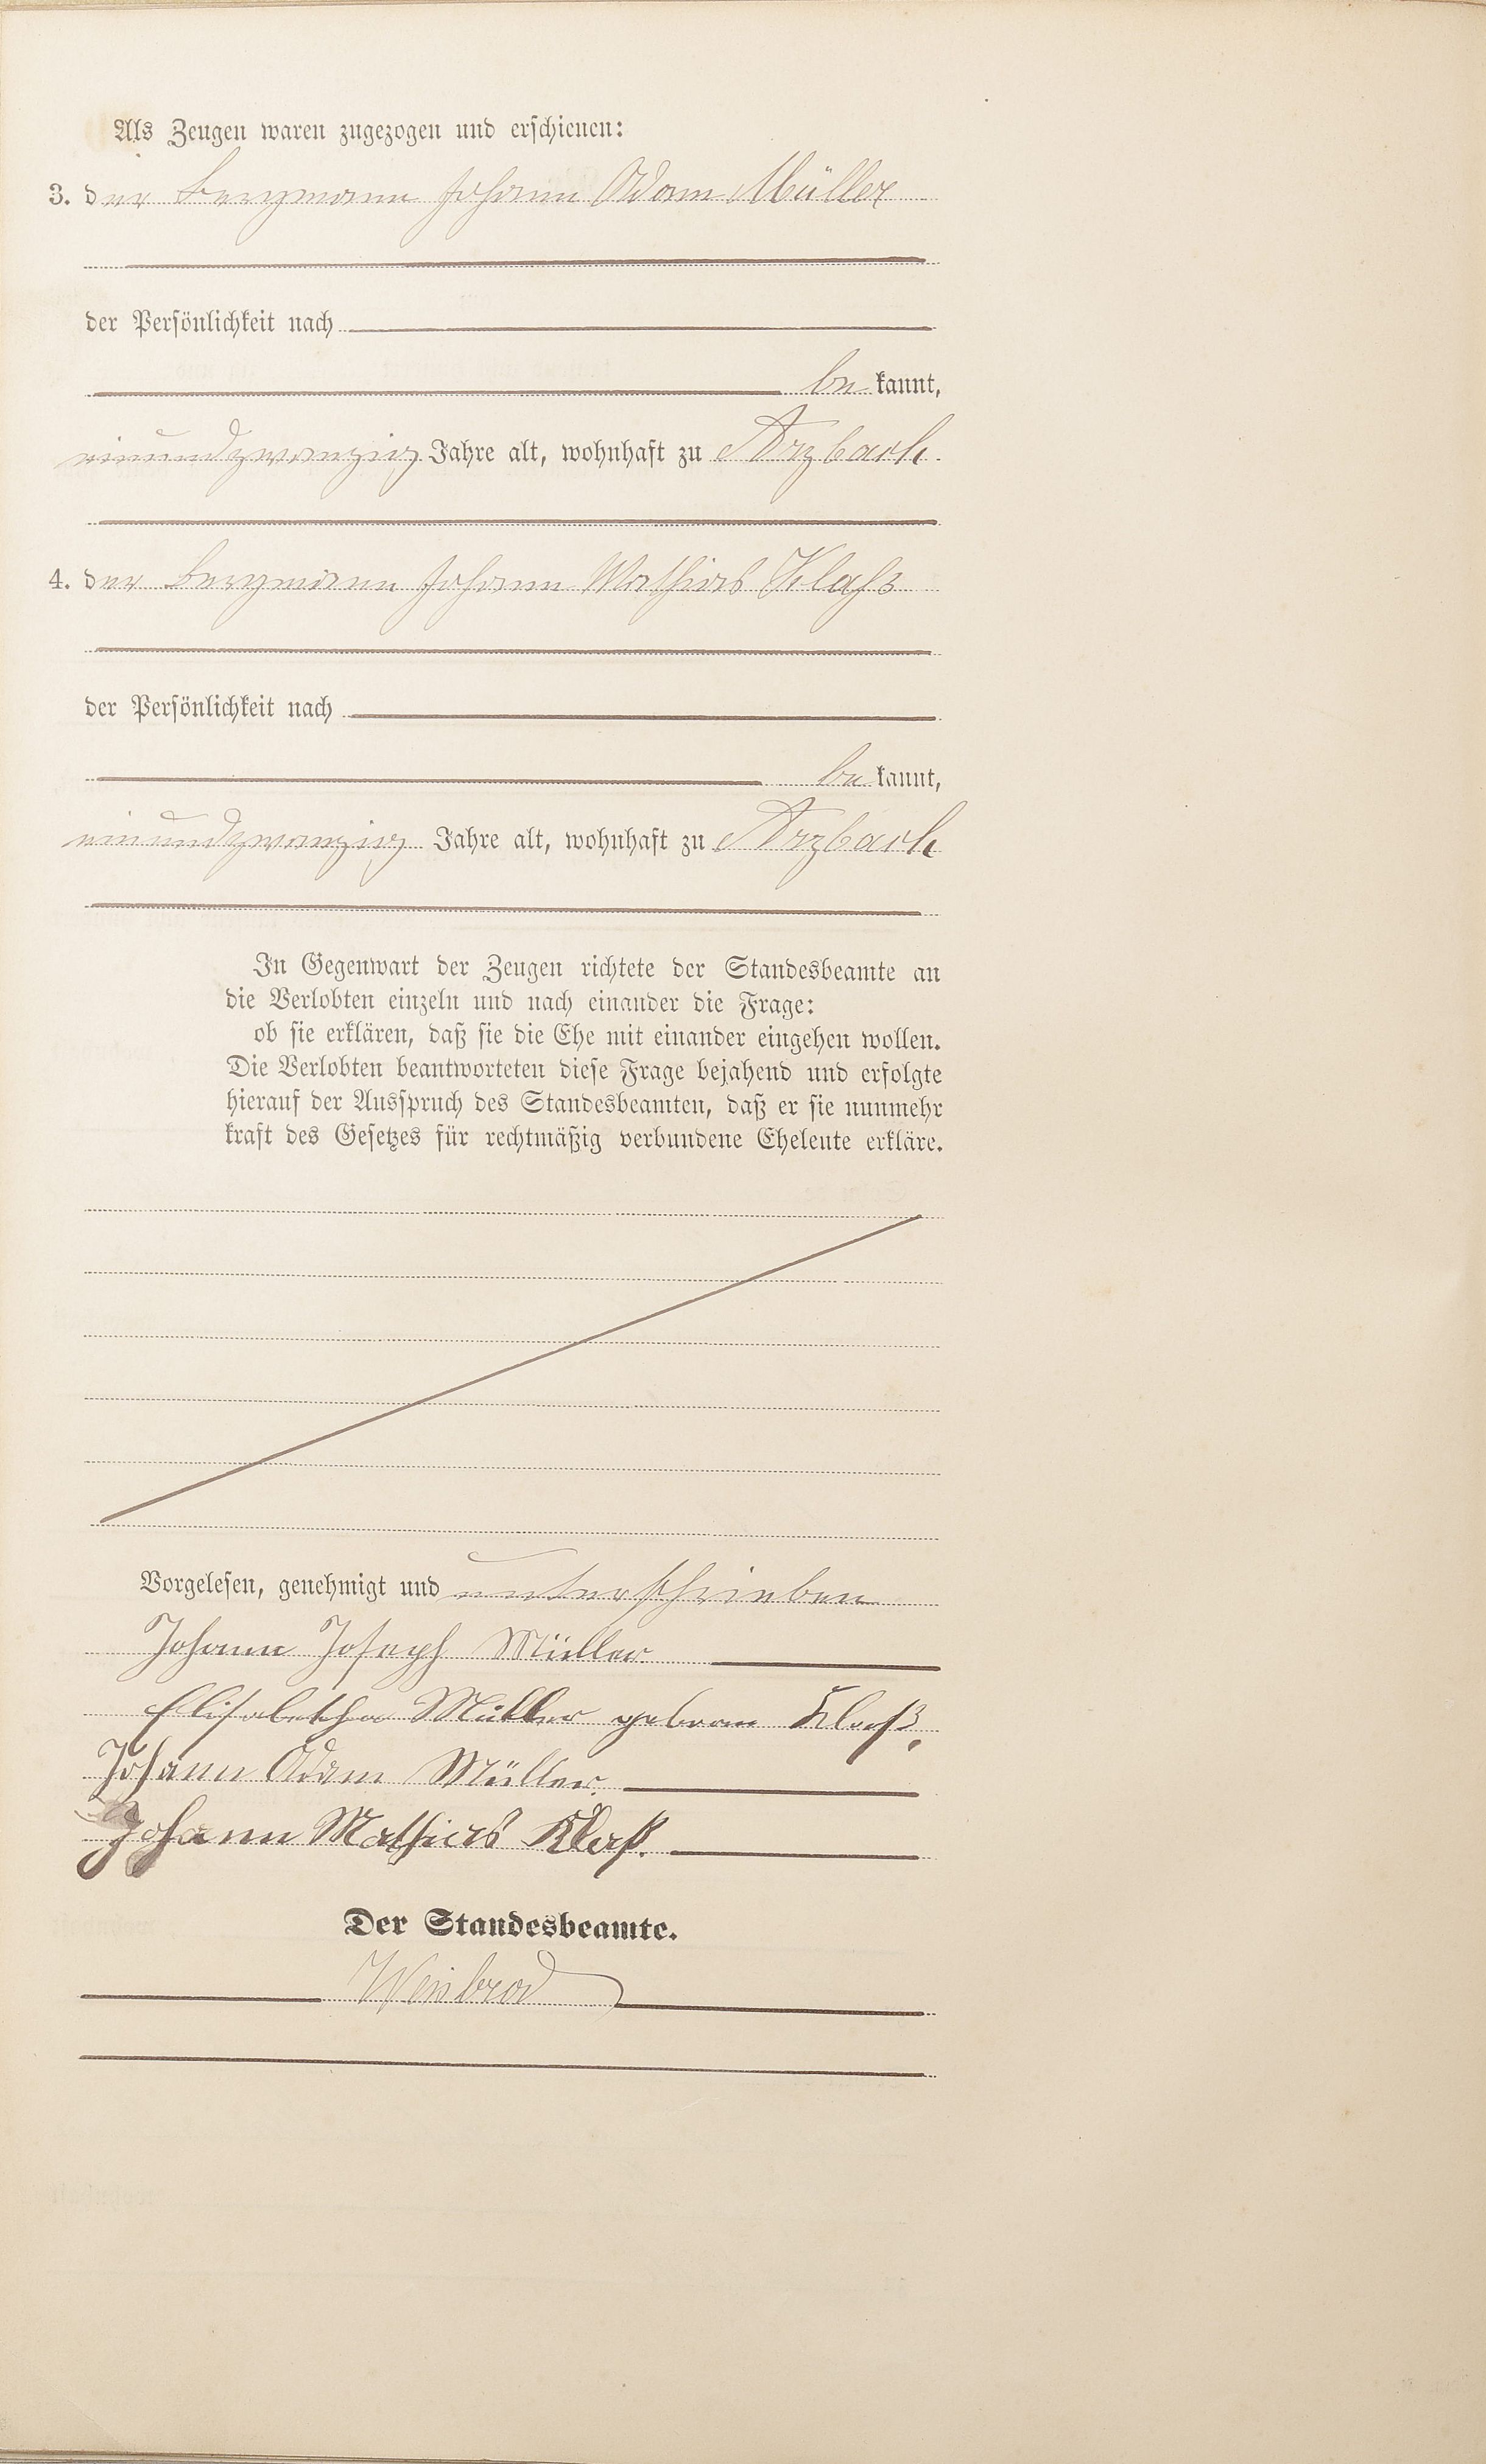 Als Zeugen waren zugezogen und erschienen:
3. der Bergmann Johann Adam Müller
der Persönlichkeit nach
be kannt,
einundzwanzig Jahre alt, wohnhaft zu Arzbach
4. der Bergmann Johann Mathias Klaß
der Persönlichkeit nach
be kannt,
einundzwanzig Jahre alt, wohnhaft zu Arzbach
In Gegenwart der Zeugen richtete der Standesbeamte an
die Verlobten einzeln und nach einander die Frage:
ob sie erklären, daß sie die Ehe mit einander eingehen wollen.
Die Verlobten beantworteten diese Frage bejahend und erfolgte
hierauf der Ausspruch des Standesbeamten, daß er sie nunmehr
kraft des Gesetzes für rechtmäßig verbundene Eheleute erkläre.
Vorgelesen, genehmigt und unterschrieben
Johann Joseph Müller
Elisabetha Müller geboren Klaß.
Johann Adam Müller.
Johann Mathias Klaß.
Der Standesbeamte.
Weisbrod